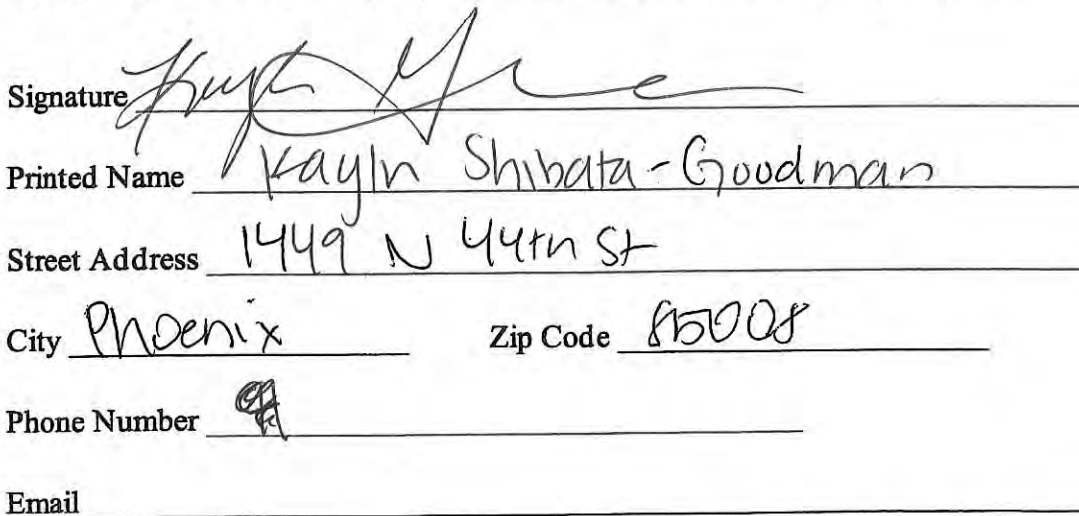 Signature
Printed Name Kayln Shibata-Goodman
Street Address 1449 N 44th St
City Phoenix Zip Code 85008
Phone Number
Email